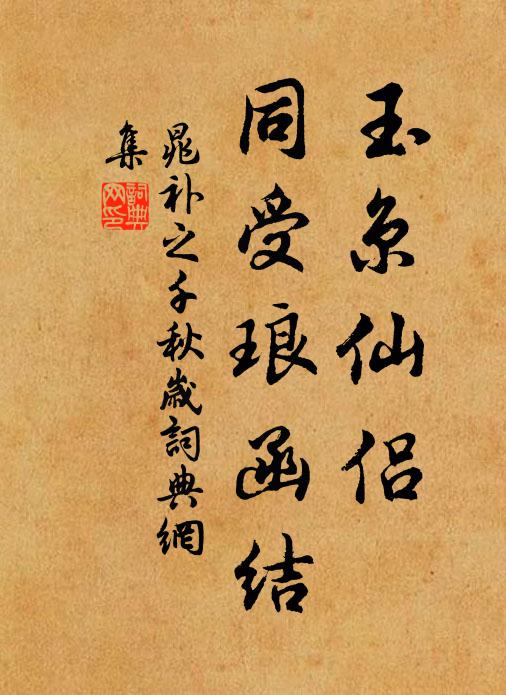 玉京仙侣
同受琅函结
晁补之千秋歲詞典網
集
詞典
网印